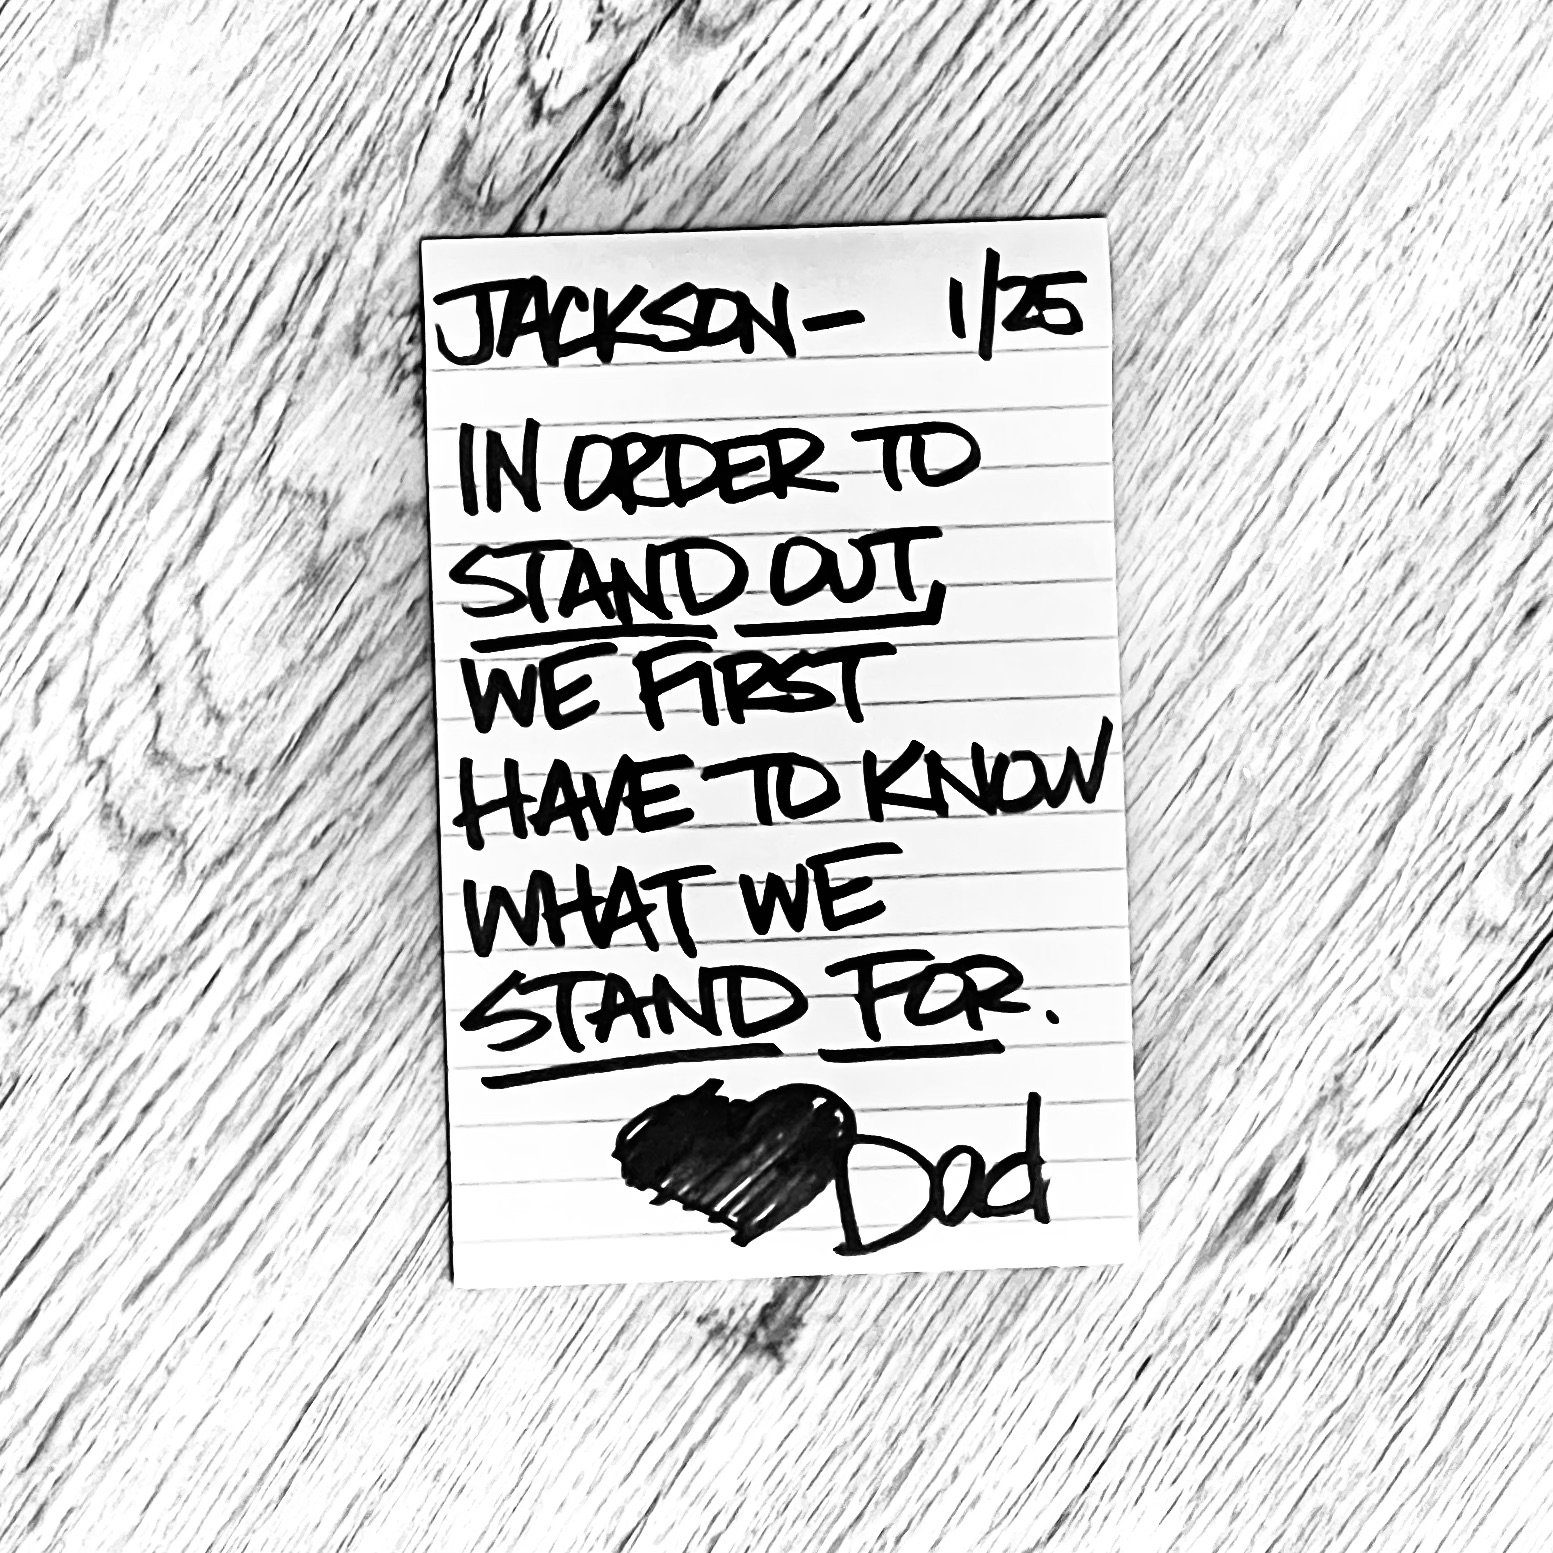 JACKSON- 1/25
IN ORDER TO
STAND OUT,
WE FIRST
HAVE TO KNOW
WHAT WE
STAND FOR.
Dad